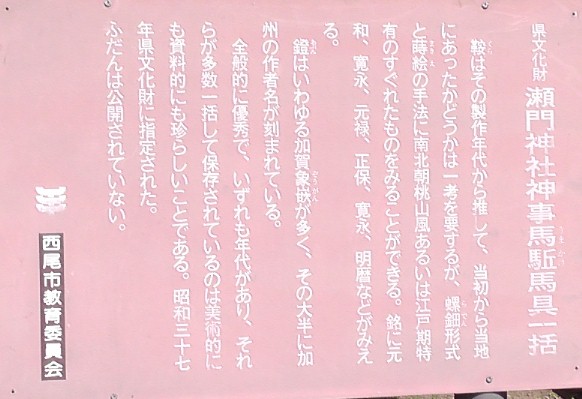 県文化財 瀬門神社神事馬駈馬具一括
鞍はその製作年代から推して、当初から当地
にあったかどうかは一考を要するが、螺鈿形式
と蒔絵の手法に南北朝桃山風あるいは江戸期特
有のすぐれたものをみることができる。銘に元
和、寛永、元禄、正保、寛永、明暦などがみえ
る。
鐙はいわゆる加賀象嵌が多く、その大半に加
州の作者名が刻まれている。
全般的に優秀で、いずれも年代があり、それ
らが多数一括して保存されているのは美術的に
も資料的にも珍らしいことである。昭和三十七
年県文化財に指定された。
ふだんは公開されていない。
西尾市教育委員会